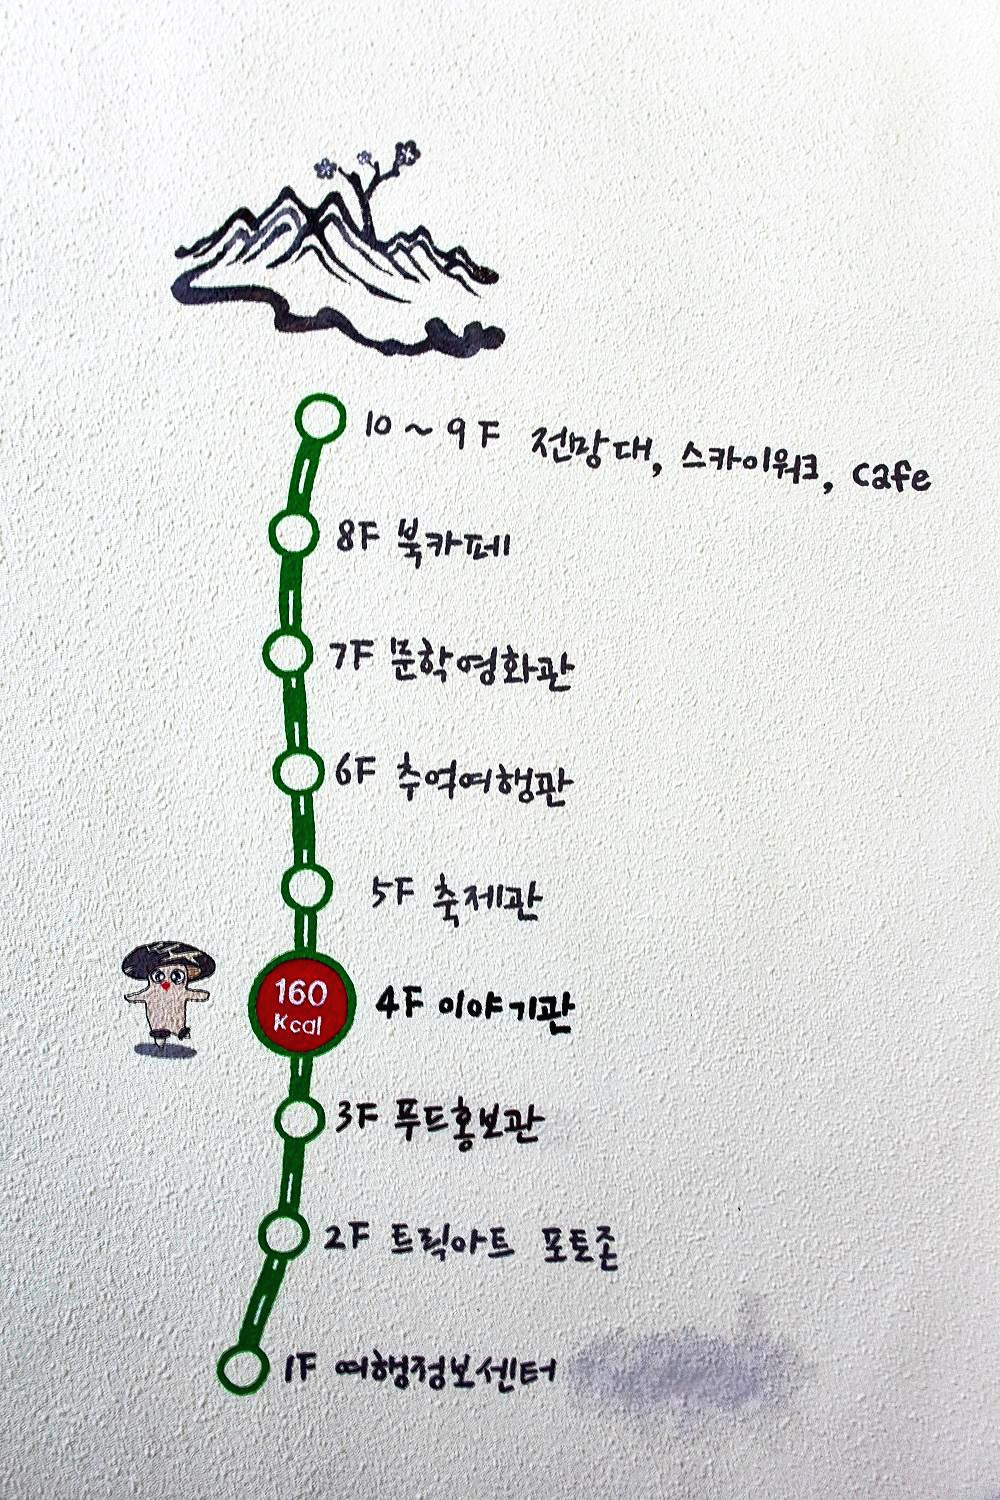 10 ~ 9F 전망대, 스카이워크, cafe
8F 북카페
7F 문학영화관
6F 추억여행관
5F 축제관
160
Kcal
4F 이야기관
3F 푸드홍보관
2F 트릭아트 포토존
1F 여행정보센터